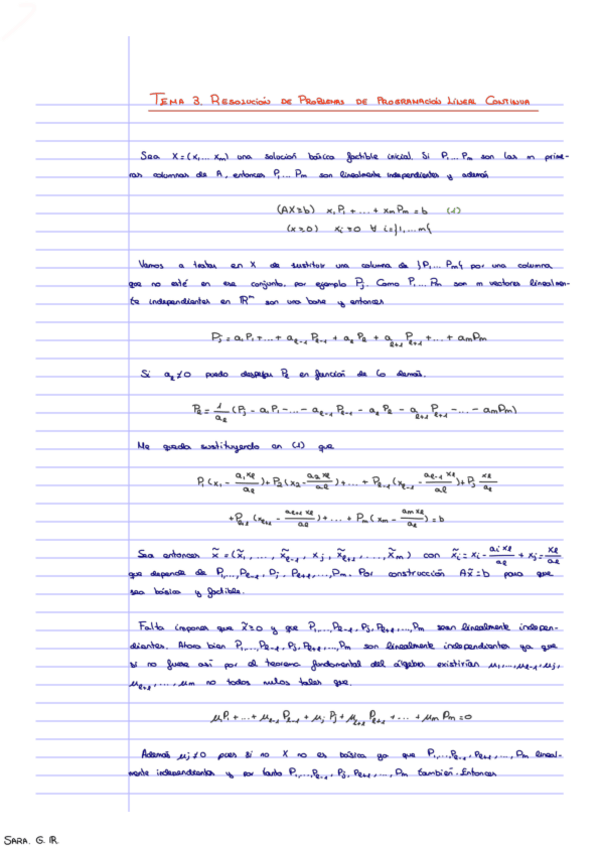 TEMA 3. RESOLUCIÓN DE PROBLEMAS DE PROGRAMACIÓN LINEAL CONTINUA
Sea X=(x₁,...xₘ) una solución básica factible inicial. Si P₁,...Pₘ son las m prime-
ras columnas de A, entonces P₁,...Pₘ son linealmente independientes y además
(AX=b) x₁P₁+...+xₘPₘ=b (1)
(x≥0) xᵢ≥0 ∀ i={1,...m}
Vamos a tratar en X de sustituir una columna de {P₁,...Pₘ} por una columna
que no esté en ese conjunto, por ejemplo Pⱼ. Como P₁,...Pₘ son m vectores linealmen-
te independientes en ℝᵐ son una base y entonces
Pⱼ=a₁P₁+...+aₑ₋₁Pₑ₋₁+aₑPₑ+aₑ₊₁Pₑ₊₁+...+aₘPₘ
Si aₑ≠0 puedo despejar Pₑ en función de lo demás.
Pₑ=1/aₑ(Pⱼ-a₁P₁-...-aₑ₋₁Pₑ₋₁-aₑPₑ-aₑ₊₁Pₑ₊₁-...-aₘPₘ)
Me queda sustituyendo en (1) que
P₁(x₁-a₁xₑ/aₑ)+P₂(x₂-a₂xₑ/aₑ)+...+Pₑ₋₁(xₑ₋₁-aₑ₋₁xₑ/aₑ)+Pⱼ xₑ/aₑ
+Pₑ₊₁(xₑ₊₁-aₑ₊₁xₑ/aₑ)+...+Pₘ(xₘ-aₘxₑ/aₑ)=b
Sea entonces x̃=(x̃₁,...,x̃ₑ₋₁,xⱼ,x̃ₑ₊₁,...,x̃ₘ) con x̃ᵢ=xᵢ-aᵢxₑ/aₑ + xⱼ=xₑ/aₑ
que depende de P₁,...,Pₑ₋₁,Pⱼ,Pₑ₊₁,...,Pₘ. Por construcción Ax̃=b para que
sea básica y factible.
Falta imponer que x̃≥0 y que P₁,...,Pₑ₋₁,Pⱼ,Pₑ₊₁,...,Pₘ sean linealmente indepen-
dientes. Ahora bien P₁,...,Pₑ₋₁,Pⱼ,Pₑ₊₁,...,Pₘ son linealmente independientes ya que
si no fuese así por el teorema fundamental del álgebra existirían μ₁,...,μₑ₋₁,μⱼ,
μₑ₊₁,...,μₘ no todos nulos tales que.
μ₁P₁+...+μₑ₋₁Pₑ₋₁+μⱼPⱼ+μₑ₊₁Pₑ₊₁+...+μₘPₘ=0
Además μⱼ≠0 pues si no X no es básica ya que P₁,...,Pₑ₋₁,Pₑ₊₁,...,Pₘ lineal-
mente independientes y por tanto P₁,...,Pₑ₋₁,Pⱼ,Pₑ₊₁,...,Pₘ también. Entonces
SARA. G. R.